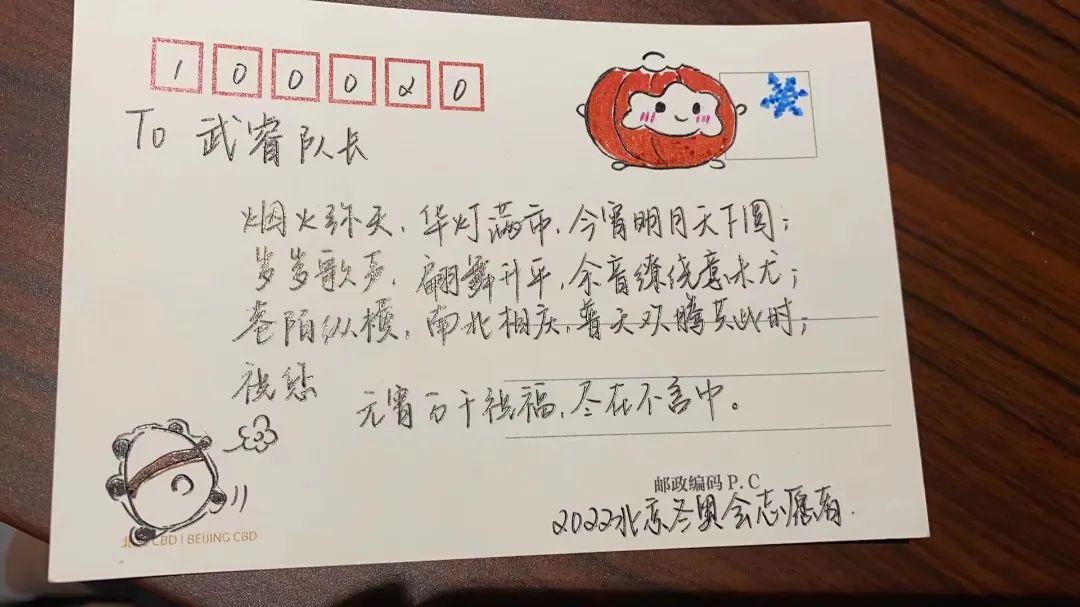 100020
To 武睿队长
烟火弥天，华灯满市，今宵明月天下圆；
岁岁歌声，翩舞升平，余音缭绕意未尤；
巷陌纵横，南北相庆，普天欢腾共此时；
祝您
元宵百千祝福，尽在不言中。
邮政编码 P. C
2022北京冬奥会志愿者.
北 CBD | BEIJING CBD